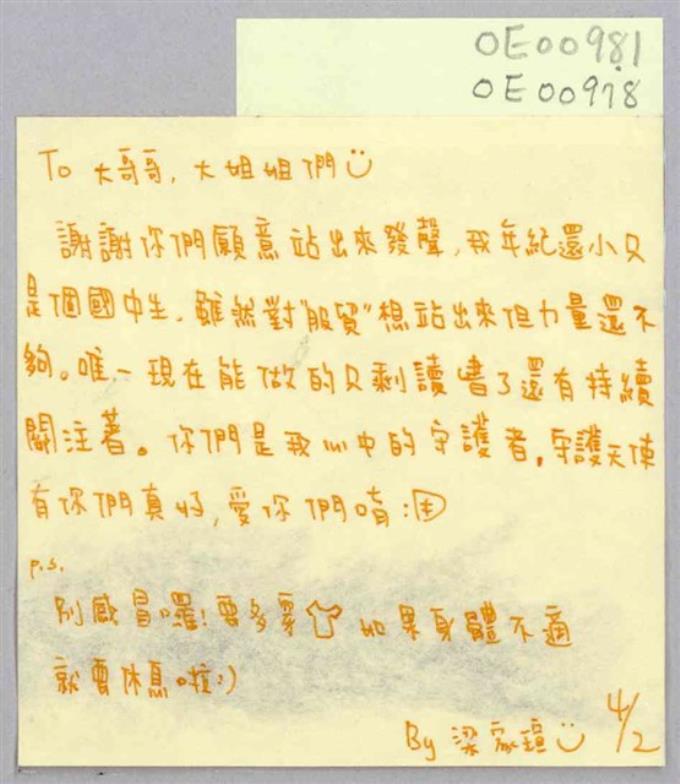 OE00981
OE00978
To 大哥哥，大姐姐們
謝謝你們願意站出來發聲，我年紀還小只
是個國中生，雖然對"服貿"想站出來但力量還不
夠。唯一現在能做的只剩讀書了還有持續
關注著。你們是我心中的守護者，守護天使
有你們真好，愛你們唷:D
p.s.
別感冒囉!要多穿 如果身體不適
就要休息啦:)
By 梁家瑄 4/2